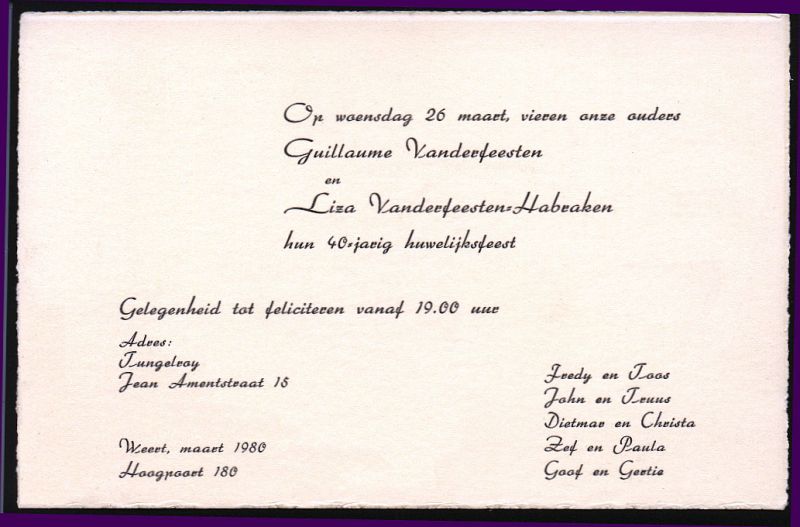 Op woensdag 26 maart, vieren onze ouders
Guillaume Vanderfeesten
en
Liza Vanderfeesten-Habraken
hun 40-jarig huwelijksfeest
Gelegenheid tot feliciteren vanaf 19.00 uur
Adres:
Tungelroy
Jean Amentstraat 15
Weert, maart 1980
Hoogpoort 180
Fredy en Toos
John en Truus
Dietmar en Christa
Zef en Paula
Goof en Gertie